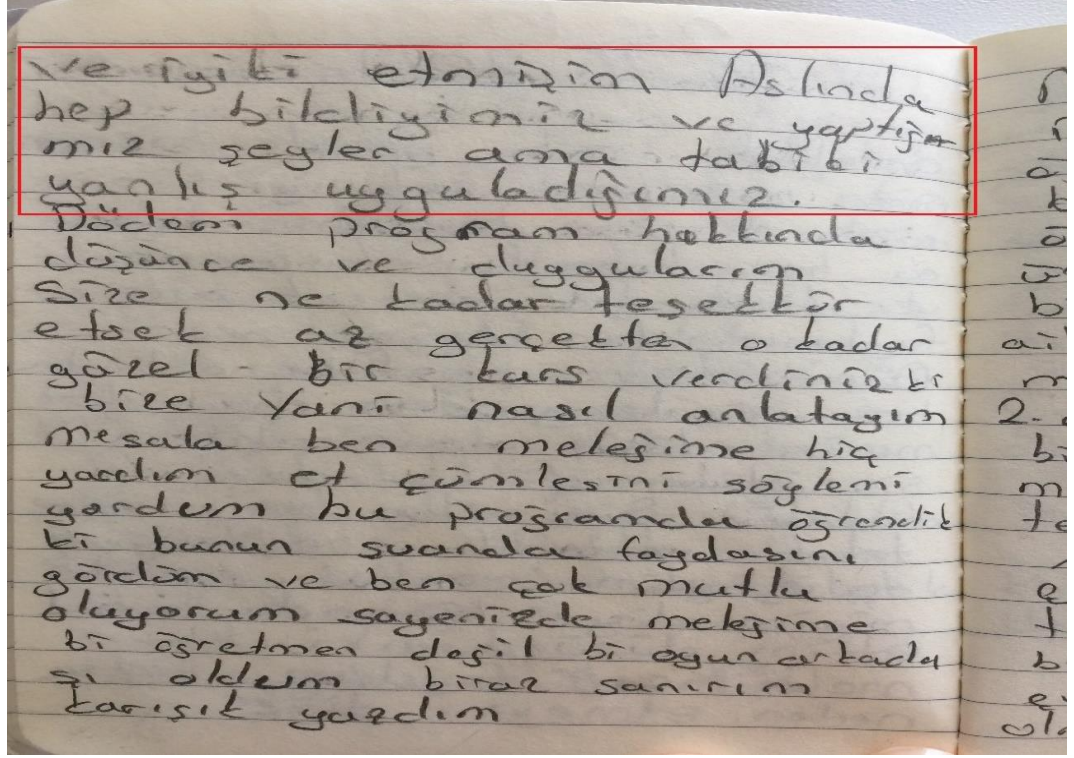 ve iyiki etmişim Aslında
hep bildiyimiz ve yaptığı
mız şeyler ama tabibi
yanlış uyguladığımız.
Dödem program hakkında
düşünce ve duygularım
Size ne kadar teşekkür
etsek az gerçekten o kadar
güzel bir kurs verdiniz ki
bize Yani nasıl anlatayım
mesala ben meleğime hiç
yardım et cümlesini söylemi
yordum bu programda öğrendik
ki bunun şuanda faydasını
gördüm ve ben çok mutlu
oluyorum sayenizde meleğime
bi öğretmen değil bi oyun arkada
şı oldum biraz sanırım
karışık yazdım
2.